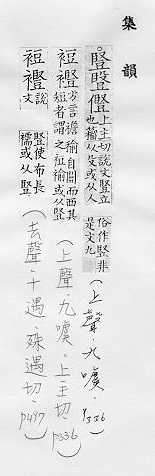 集韻
豎
上主切說文豎立
也籀从殳或从人
俗作竪非
是文九
(上聲.九噳.p336)
裋
方言襜褕自關而西其
短者謂之裋褕或从豎
(上聲.九噳.上主切.p336)
裋
說文
豎使布長
襦或从豎
(去聲.十遇.殊遇切.p497)